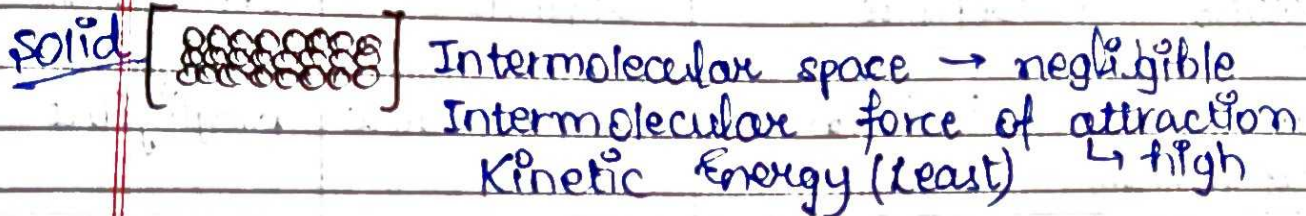 solid [ ] Intermolecular space → negligible
Intermolecular force of attraction
Kinetic Energy (Least) ↳ high